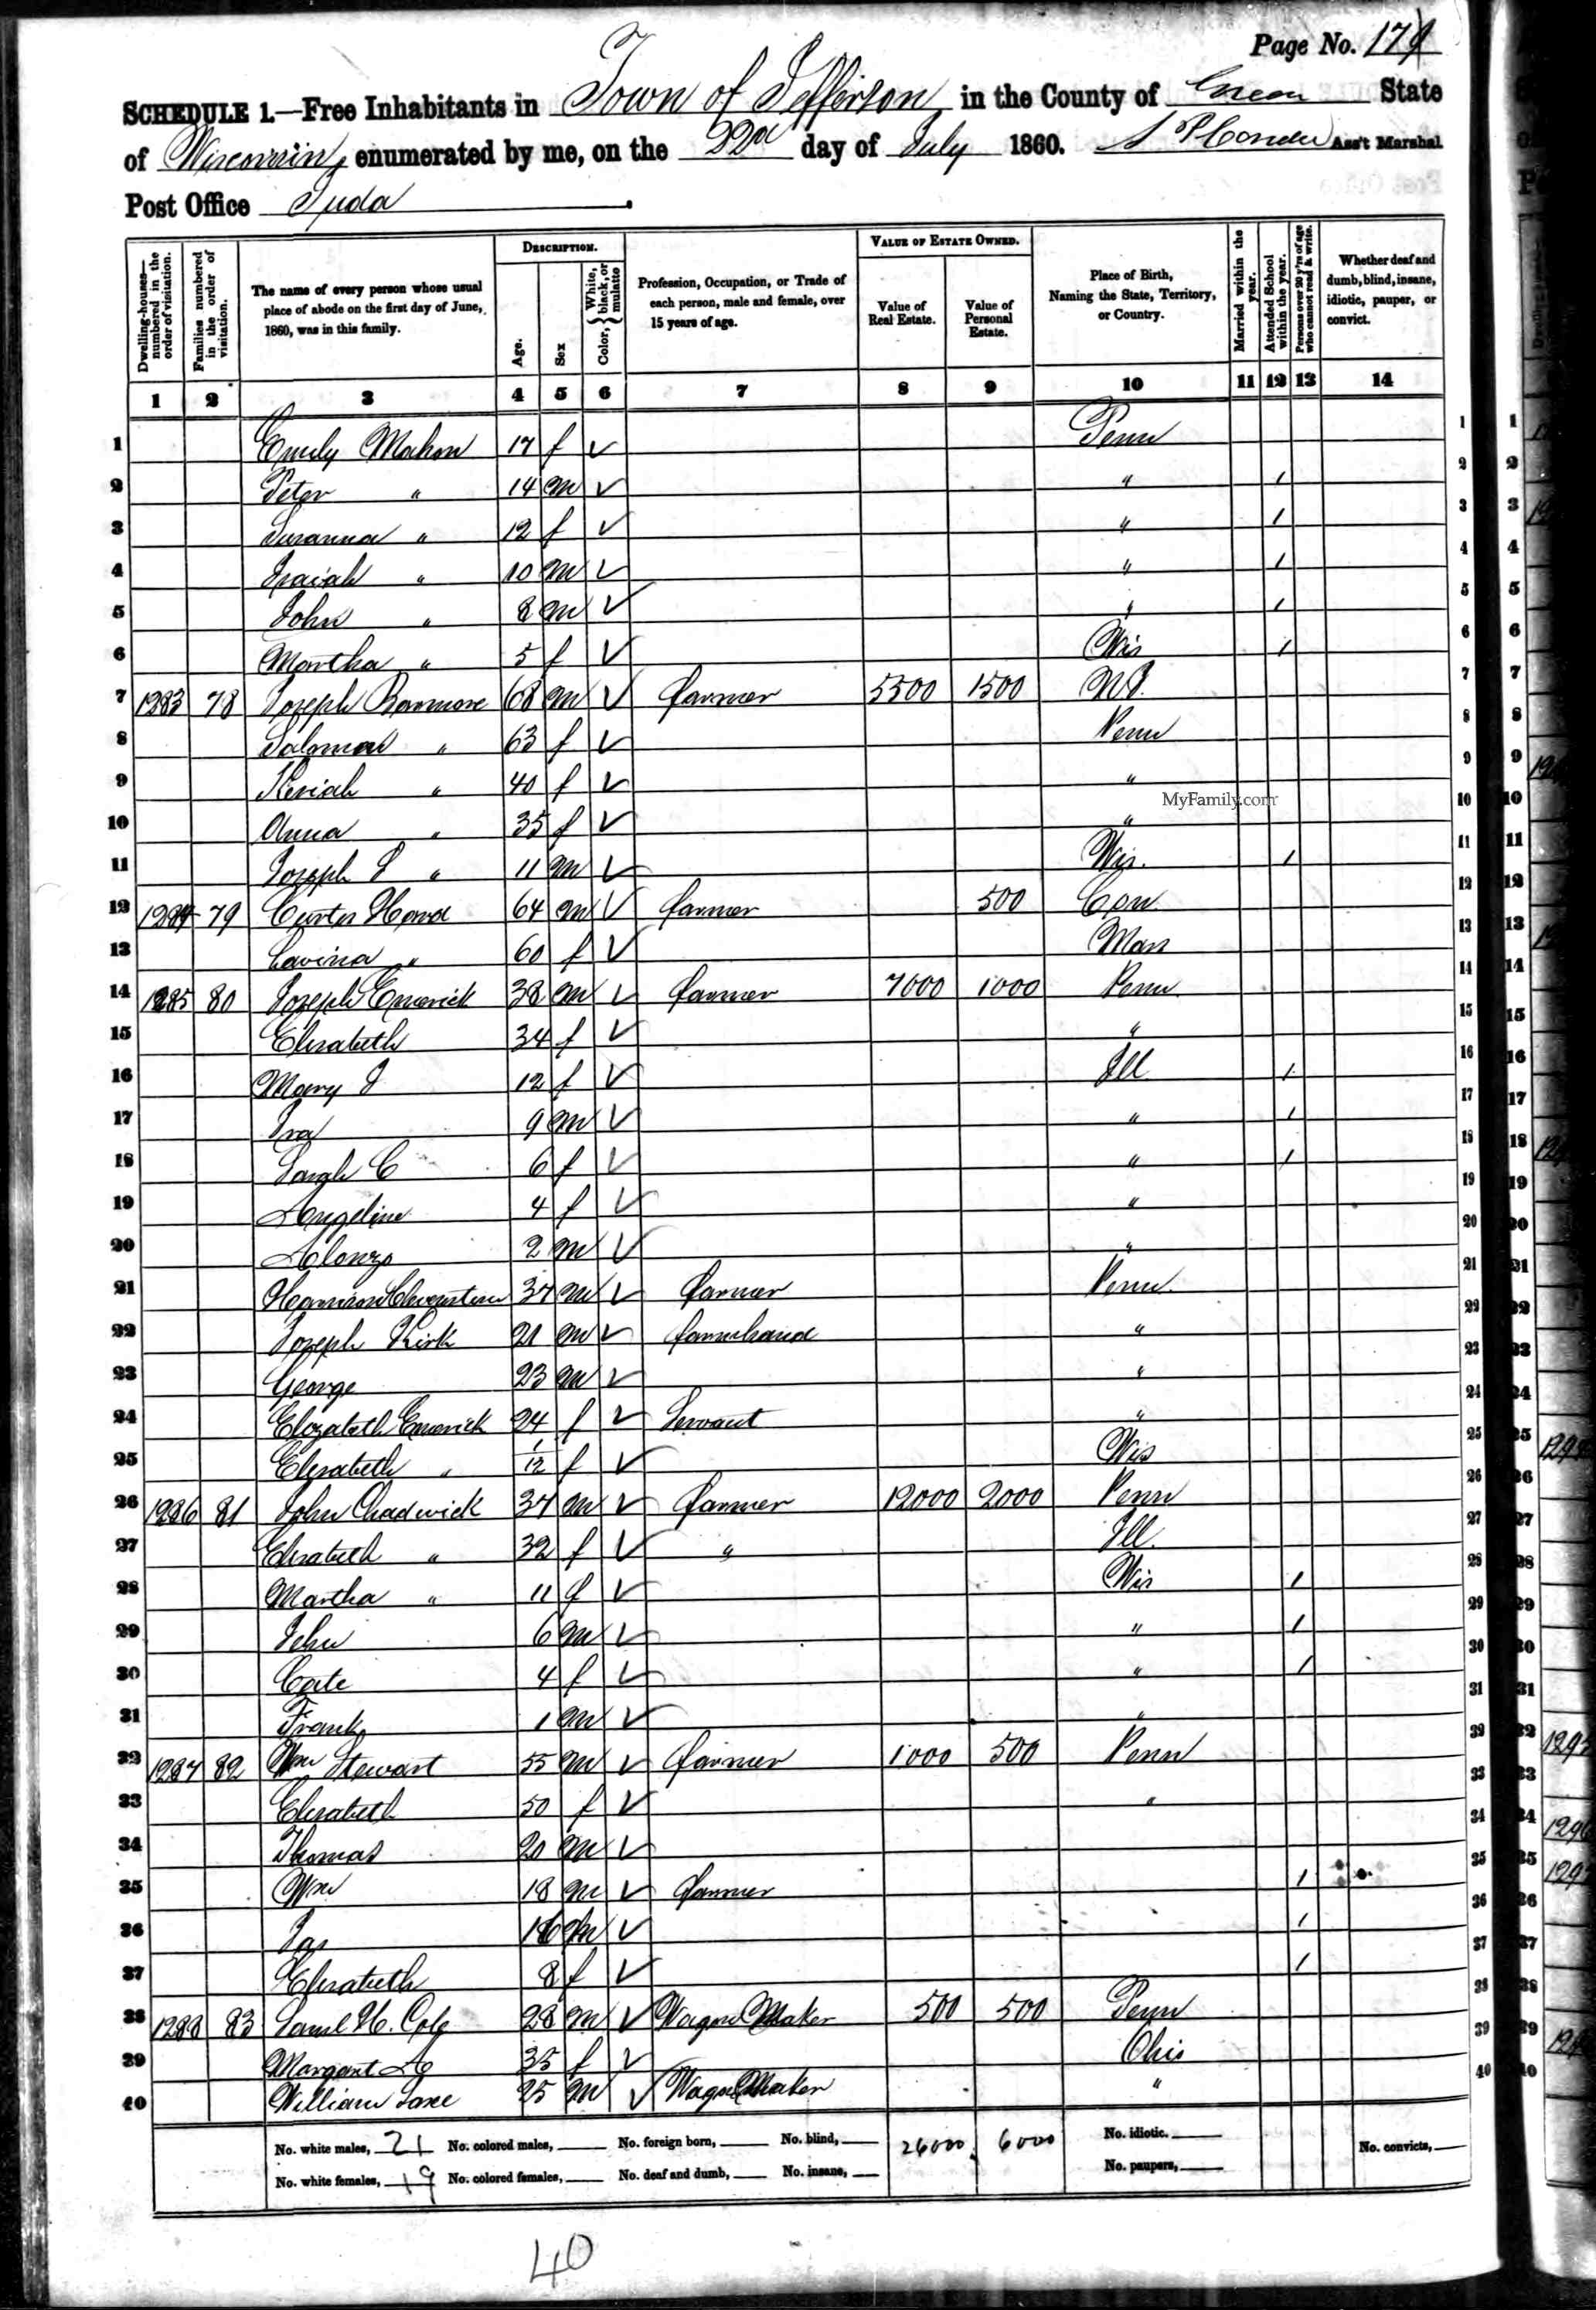 Page No. 174
SCHEDULE 1.—Free Inhabitants in Town of Jefferson in the County of Green State
of Wisconsin, enumerated by me, on the 22nd day of July 1860. Ass't Marshal
Post Office Juda
Dwelling-houses—numbered in the order of visitation. Families numbered in the order of visitation. The name of every person whose usual place of abode on the first day of June, 1860, was in this family. DESCRIPTION. Age. Sex Color, { White, black, or mulatto Profession, Occupation, or Trade of each person, male and female, over 15 years of age. VALUE OF ESTATE OWNED. Value of Real Estate. Value of Personal Estate. Place of Birth, Naming the State, Territory, or Country. Married within the year. Attended School within the year. Persons over 20 y'rs of age who cannot read & write. Whether deaf and dumb, blind, insane, idiotic, pauper, or convict.
1 2 3 4 5 6 7 8 9 10 11 12 13 14
1 Emily Mahon 17 f ✓ Penn 1
2 Peter " 14 m ✓ " / 2
3 Susanna " 12 f ✓ " / 3
4 Isaiah " 10 m ✓ " / 4
5 John " 8 m ✓ " / 5
6 Martha " 5 f ✓ Wis / 6
7 1283 78 Joseph 68 m ✓ farmer 5500 1500 N J. 7
8 " 63 f ✓ Penn 8
9 Kesiah " 40 f ✓ " 9
MyFamily.com
10 Anna " 35 f ✓ " 10
11 Joseph " 11 m ✓ Wis. / 11
12 1284 79 Curtis 64 m ✓ farmer 500 Con 12
13 Lavina " 60 f ✓ Mass 13
14 1285 80 Joseph Emerick 38 m ✓ farmer 7000 1000 Penn 14
15 Elisabeth 34 f ✓ " 15
16 Mary J 12 f ✓ Ill. / 16
17 Ira 9 m ✓ " / 17
18 Sarah C 6 f ✓ " / 18
19 Angeline 4 f ✓ " 19
20 Alonzo 2 m ✓ " 20
21 Harrison 37 m ✓ farmer Penn. 21
22 Joseph Kirk 21 m ✓ farmhand " 22
23 George 23 m ✓ " 23
24 Elizabeth Emerick 24 f ✓ Servant " 24
25 Elisabeth " 1/12 f ✓ Wis 25
26 1286 81 John Chadwick 37 m ✓ farmer 12000 2000 Penn 26
27 Elisabeth " 32 f ✓ " Ill. 27
28 Martha " 11 f ✓ Wis / 28
29 John 6 m ✓ " / 29
30 Cate 4 f ✓ " / 30
31 Frank 1 m ✓ " 31
32 1287 82 Wm Stewart 55 m ✓ farmer 1000 500 Penn 32
33 Elisabeth 50 f ✓ " 33
34 Thomas 20 m ✓ 34
35 Wm 18 m ✓ farmer / 35
36 Jas 16 m ✓ / 36
37 Elisabeth 8 f ✓ / 37
38 1288 83 Saml H. Cole 28 m ✓ Wagon Maker 500 500 Penn 38
39 Margaret A 35 f ✓ Ohio 39
40 William Lane 25 m ✓ Wagon Maker " 40
No. white males, 21 No. colored males, No. foreign born, No. blind, 26000 6000 No. idiotic. No. convicts,
No. white females, 19 No. colored females, No. deaf and dumb, No. insane, No. paupers,
40